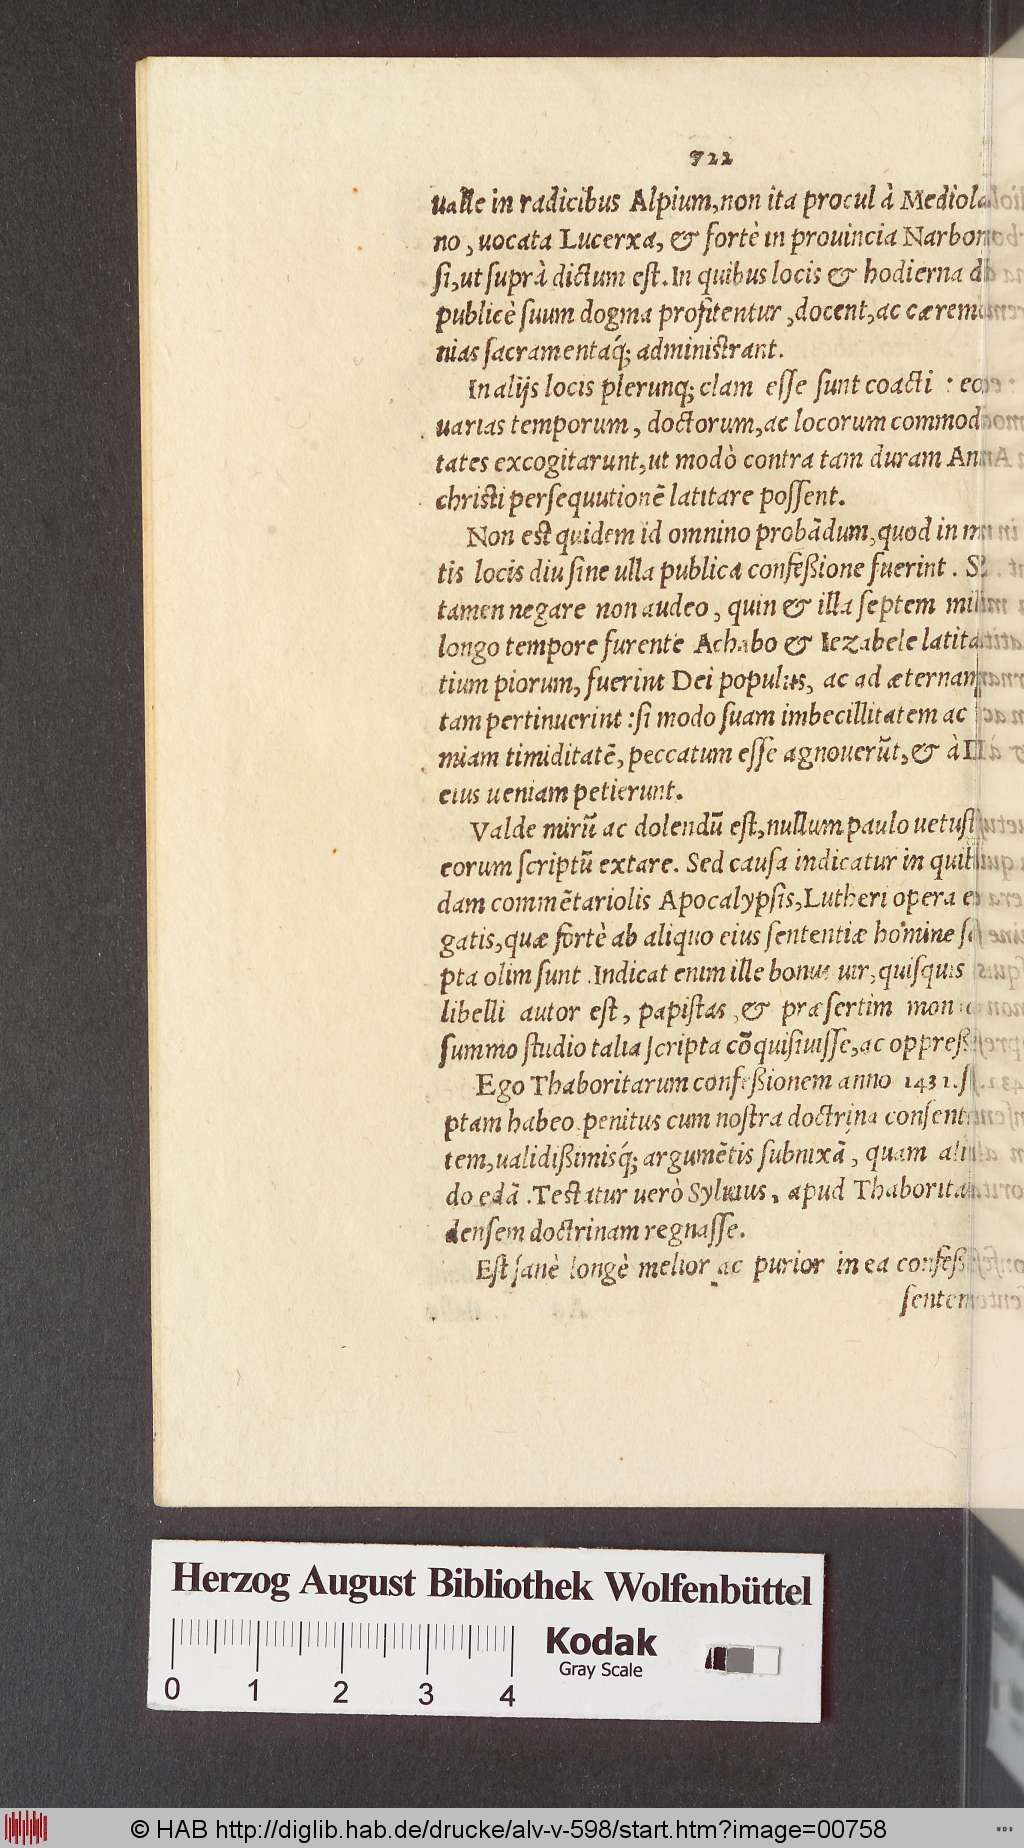 722
ualle in radicibus Alpium,non ita procul à Mediola
no, uocata Lucerxa, & fortè in prouincia Narbone
si,ut suprà dictum est. In quibus locis & hodierna
publicè suum dogma profitentur, docent,ac cæremo
nias sacramentaq́; administrant.
In alijs locis plerunq; clam esse sunt coacti :
uarias temporum, doctorum,ac locorum commodi
tates excogitarunt,ut modò contra tam duram
christi persequutionẽ latitare possent.
Non est quidem id omnino probãdum,quod in
tis locis diu sine ulla publica confeßione fuerint.
tamen negare non audeo, quin & illa septem
longo tempore furente Achabo & Iezabele latitã
tium piorum, fuerint Dei populus, ac ad æternam
tam pertinuerint : si modo suam imbecillitatem ac
miam timiditatẽ, peccatum esse agnouerũt,& à
eius ueniam petierunt.
Valde mirũ ac dolendũ est,nullum paulo uetust
eorum scriptũ extare. Sed causa indicatur in quib
dam commẽtariolis Apocalypsis,Lutheri opera
gatis,quæ fortè ab aliquo eius sententiæ homine
pta olim sunt. Indicat enim ille bonus uir,quisquis
libelli autor est, papistas, & præsertim
summo studio talia scripta cõquisiuisse,ac oppreß
Ego Thaboritarum confeßionem anno 1431.
ptam habeo penitus cum nostra doctrina consen
tem,ualidißimisq́; argumẽtis subnixã, quam
do edã. Testatur uerò Syluius, apud Thaborita
densem doctrinam regnasse.
Est sanè longè melior ac purior in ea confeß
senten
Herzog August Bibliothek Wolfenbüttel
Kodak
Gray Scale
0 1 2 3 4
© HAB http://diglib.hab.de/drucke/alv-v-598/start.htm?image=00758